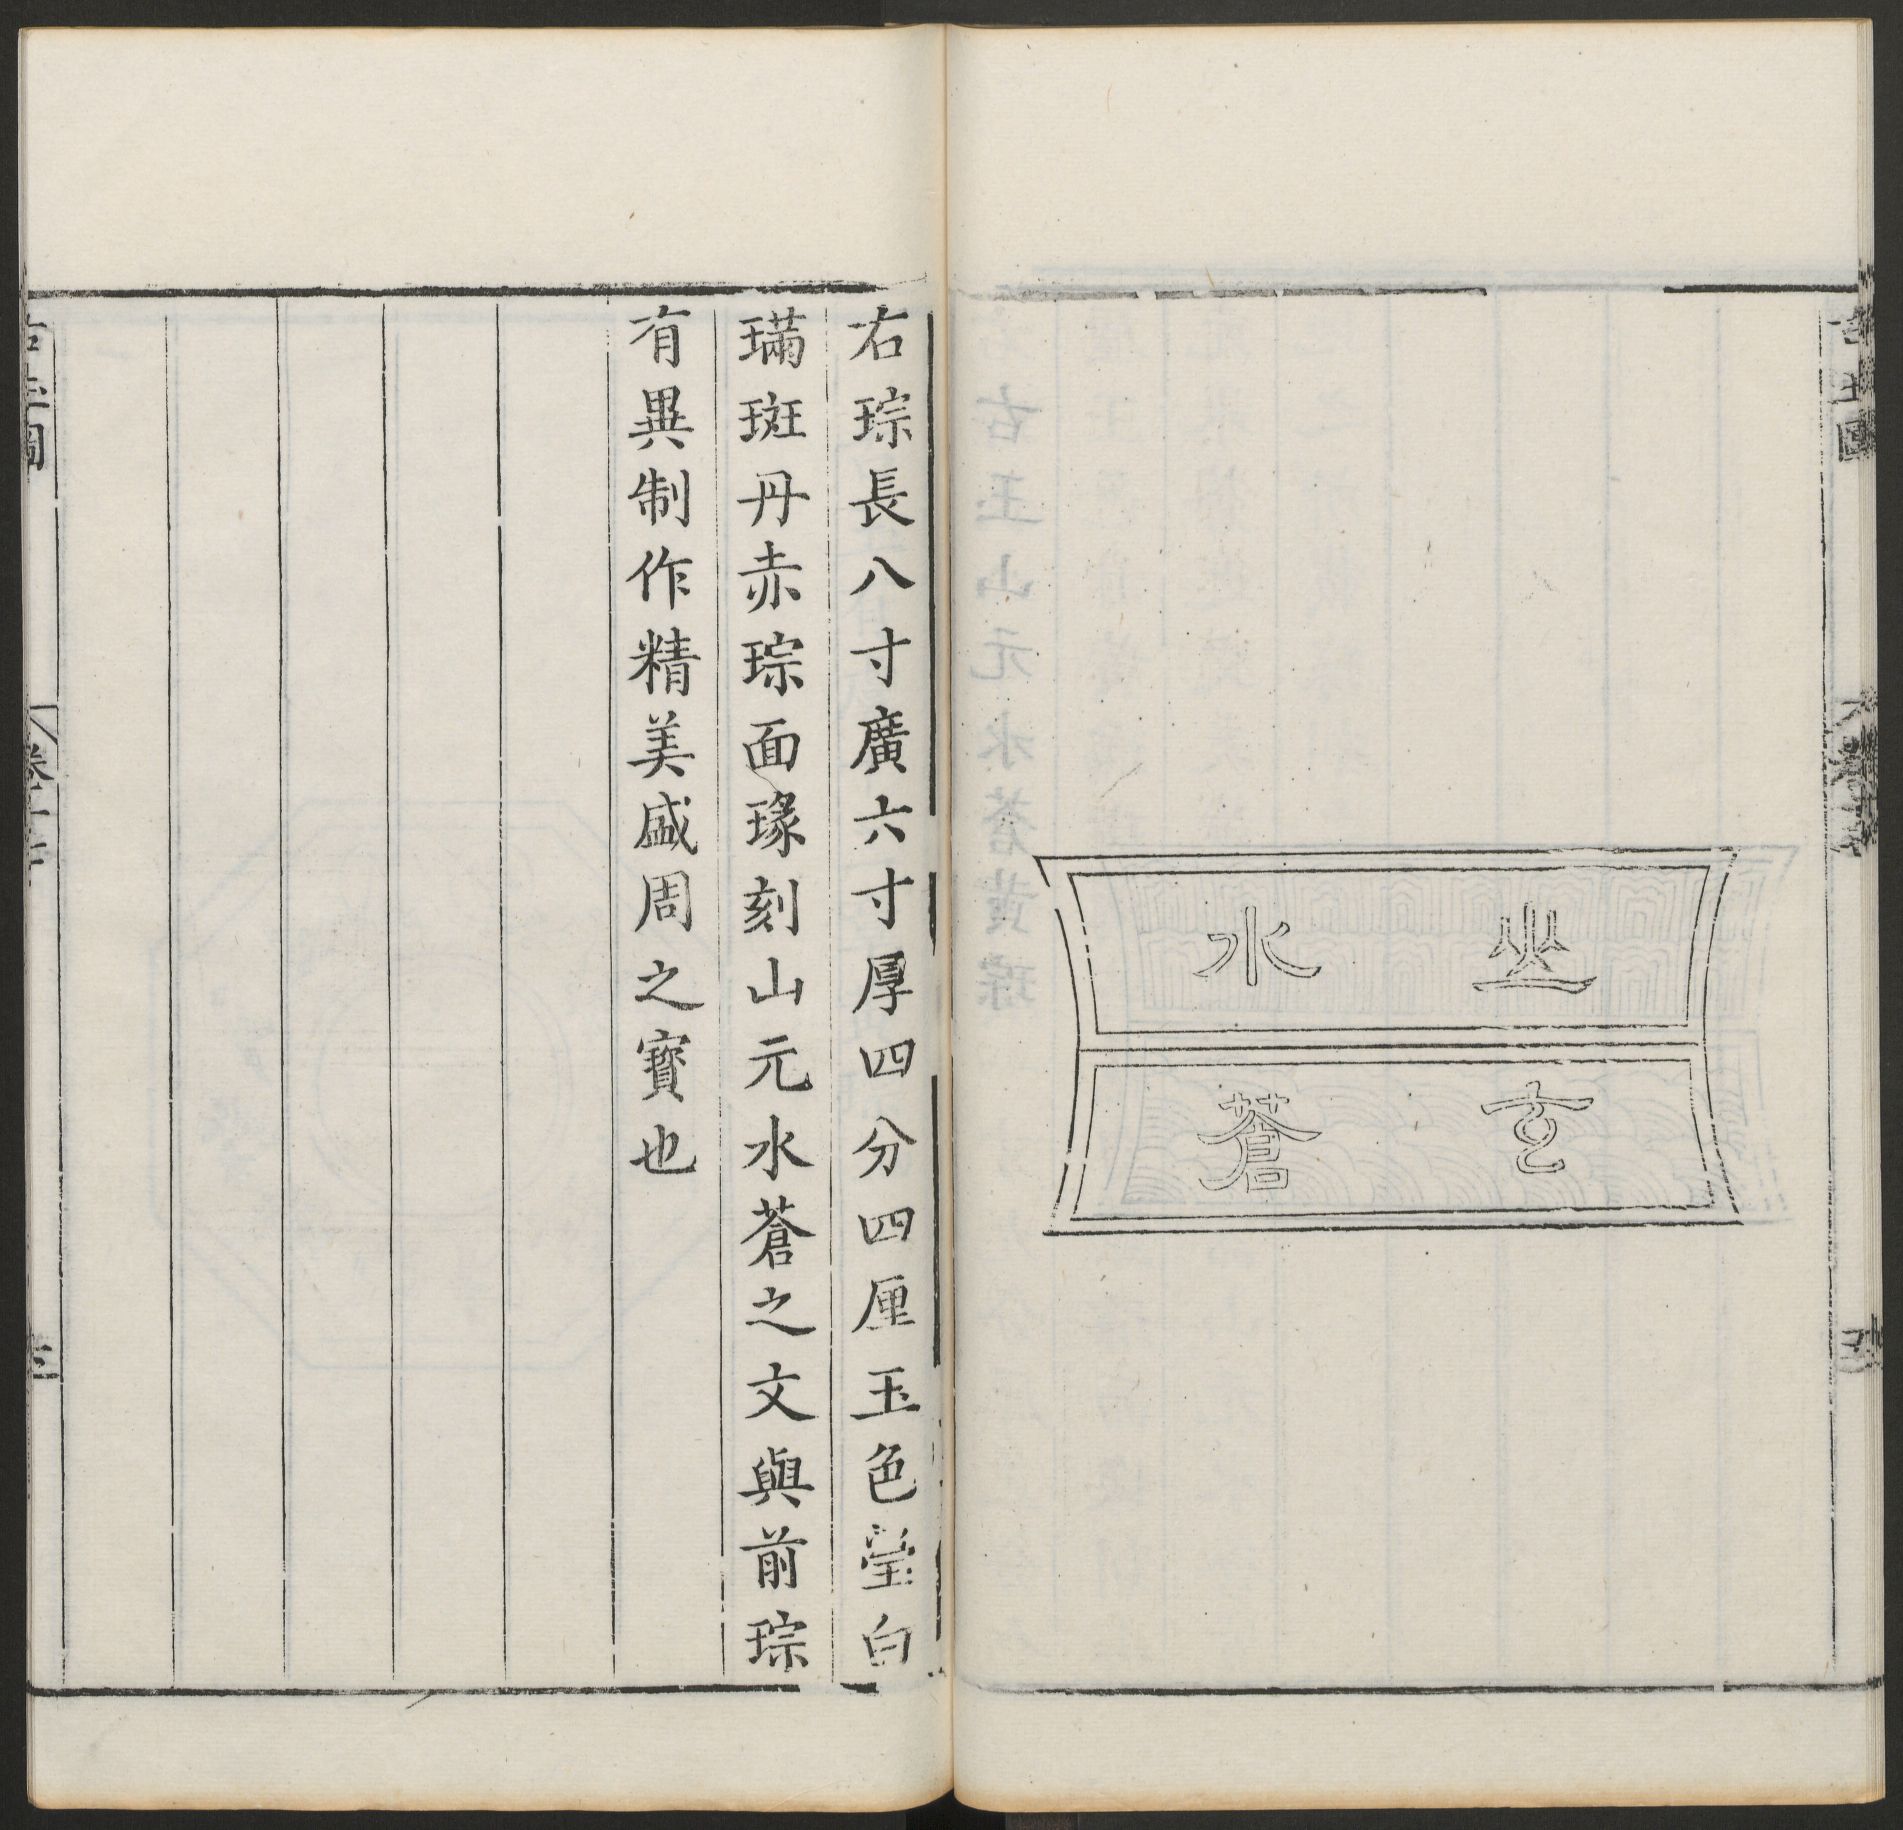 古玉圖
水
蒼
玄
右琮長八寸廣六寸厚四分四厘玉色瑩白
璊斑丹赤琮面瑑刻山元水蒼之文與前琮
有異制作精美盛周之寶也